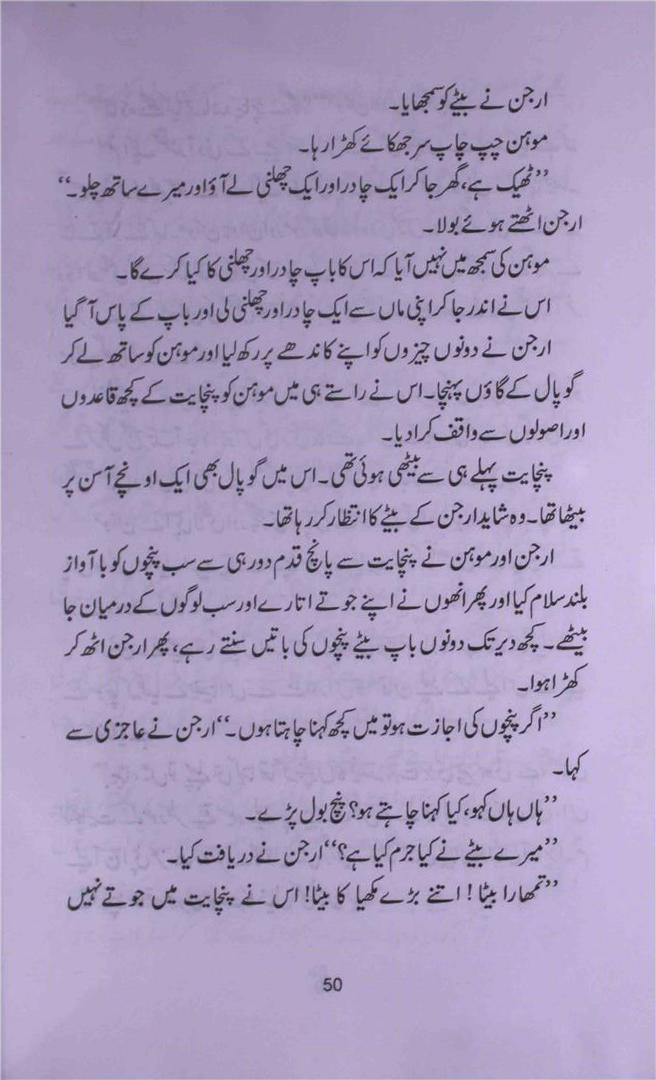 ارجن نے بیٹے کو سمجھایا۔
موہن چپ چاپ سر جھکائے کھڑا رہا۔
”ٹھیک ہے، گھر جا کر ایک چادر اور ایک چھلنی لے آؤ اور میرے ساتھ چلو۔“
ارجن اٹھتے ہوئے بولا۔
موہن کی سمجھ میں نہیں آیا کہ اس کا باپ چادر اور چھلنی کا کیا کرے گا۔
اس نے اندر جا کر اپنی ماں سے ایک چادر اور چھلنی لی اور باپ کے پاس آ گیا
ارجن نے دونوں چیزوں کو اپنے کاندھے پر رکھ لیا اور موہن کو ساتھ لے کر
گوپال کے گاؤں پہنچا۔ اس نے راستے ہی میں موہن کو پنچایت کے کچھ قاعدوں
اور اصولوں سے واقف کرا دیا۔
پنچایت پہلے ہی سے بیٹھی ہوئی تھی۔ اس میں گوپال بھی ایک اونچے آسن پر
بیٹھا تھا۔ وہ شاید ارجن کے بیٹے کا انتظار کر رہا تھا۔
ارجن اور موہن نے پنچایت سے پانچ قدم دور ہی سے سب پنچوں کو با آواز
بلند سلام کیا اور پھر انھوں نے اپنے جوتے اتارے اور سب لوگوں کے درمیان جا
بیٹھے۔ کچھ دیر تک دونوں باپ بیٹے پنچوں کی باتیں سنتے رہے، پھر ارجن اٹھ کر
کھڑا ہوا۔
”اگر پنچوں کی اجازت ہو تو میں کچھ کہنا چاہتا ہوں۔“ ارجن نے عاجزی سے
کہا۔
”ہاں ہاں کہو، کیا کہنا چاہتے ہو؟ پنچ بول پڑے۔
”میرے بیٹے نے کیا جرم کیا ہے؟“ ارجن نے دریافت کیا۔
”تمھارا بیٹا! اتنے بڑے مکھیا کا بیٹا! اس نے پنچایت میں جوتے نہیں
50